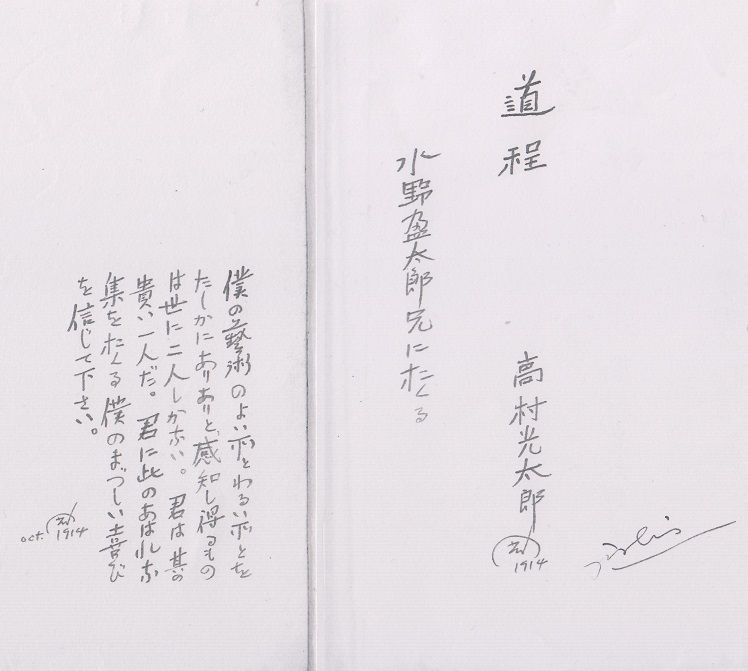 道程
高村光太郎
1914
水野盈太郎兄におくる
僕の藝術のよい所とわるい所とを
たしかにありありと感知し得るもの
は世に二人しかない。君は其の
貴い一人だ。君に此のあはれな
集をおくる僕のまづしい喜び
を信じて下さい。
oct. 1914